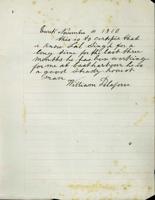 November 11 1910
this is to certify that
I know Lal Singh for a
long time for the last three
months he has been working
for me at he is
a good steady honest
man
William